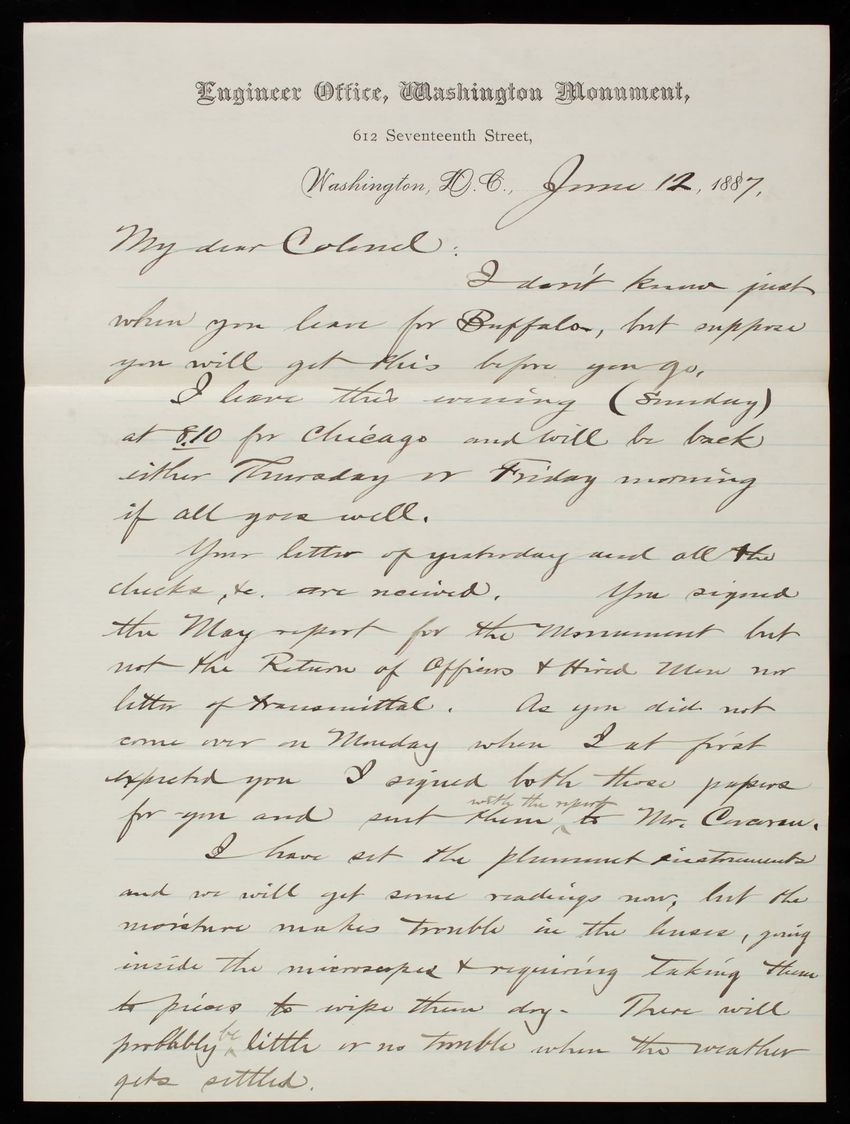 Engineer Office, Washington Monument,
612 Seventeenth Street,
Washington, D.C., June 12, 1887.
My dear Colonel:
I don't know just
when you leave for Buffalo, but suppose
you will get this before you go.
I leave this evening (Sunday)
at 8.10 for Chicago and will be back
either Thursday or Friday morning
if all goes well.
Your letter of yesterday and all the
checks, &c. are received. You signed
the May report for the Monument but
not the Return of Officers & Hired Men nor
letter of transmittal. As you did not
come over on Monday when I at first
expected you I signed both those papers
with the report
for you and sent them ^ to Mr. Corcoran.
I have set the plummet instruments
and we will get some readings now, but the
moisture makes trouble in the lenses, going
inside the microscopes & requiring taking them
to pieces to wipe them dry - There will
be
probably ^ little or no trouble when the weather
gets settled.